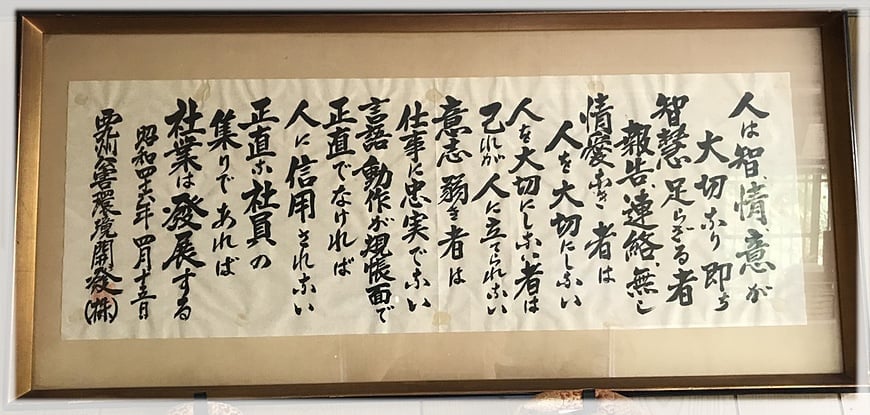 人は智、情、意が
大切なり即ち
智慧足らざる者
報告、連絡、無し
情愛なき者は
人を大切にしない
人を大切にしない者は
己れが人に立てられない
意志弱き者は
仕事に忠実でない
言語動作が規帳面で
正直でなければ
人に信用されない
正直な社員の
集りであれば
社業は發展する
昭和四十六年四月十五日
九州公害環境開發(株)